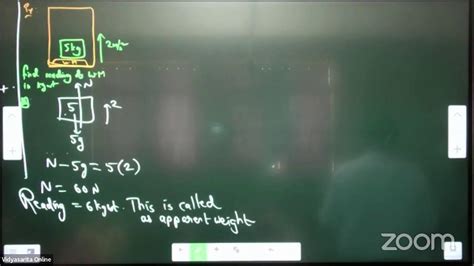 5kg
WM
2m/s²
find reading of WM
in kgwt
N
5
2
5g
N - 5g = 5(2)
N = 60N
Reading = 6kgwt. This is called
as apparent weight
zoom
Vidyasarita Online